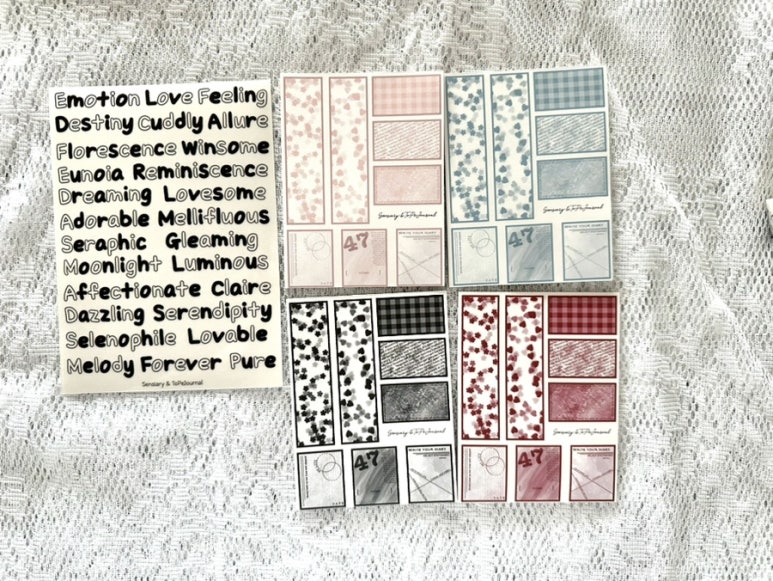 Emotion Love Feeling
Destiny Cuddly Allure
Florescence Winsome
Eunoia Reminiscence
Dreaming Lovesome
Adorable Mellifluous
Seraphic Gleaming
Moonlight Luminous
Affectionate Claire
Dazzling Serendipity
Selenophile Lovable
Melody Forever Pure
Sensiary & ToPeJournal
Sensiary & ToPeJournal
47
WRITE YOUR DIARY
Sensiary & ToPeJournal
47
WRITE YOUR DIARY
Sensiary & ToPeJournal
47
WRITE YOUR DIARY
Sensiary & ToPeJournal
47
WRITE YOUR DIARY